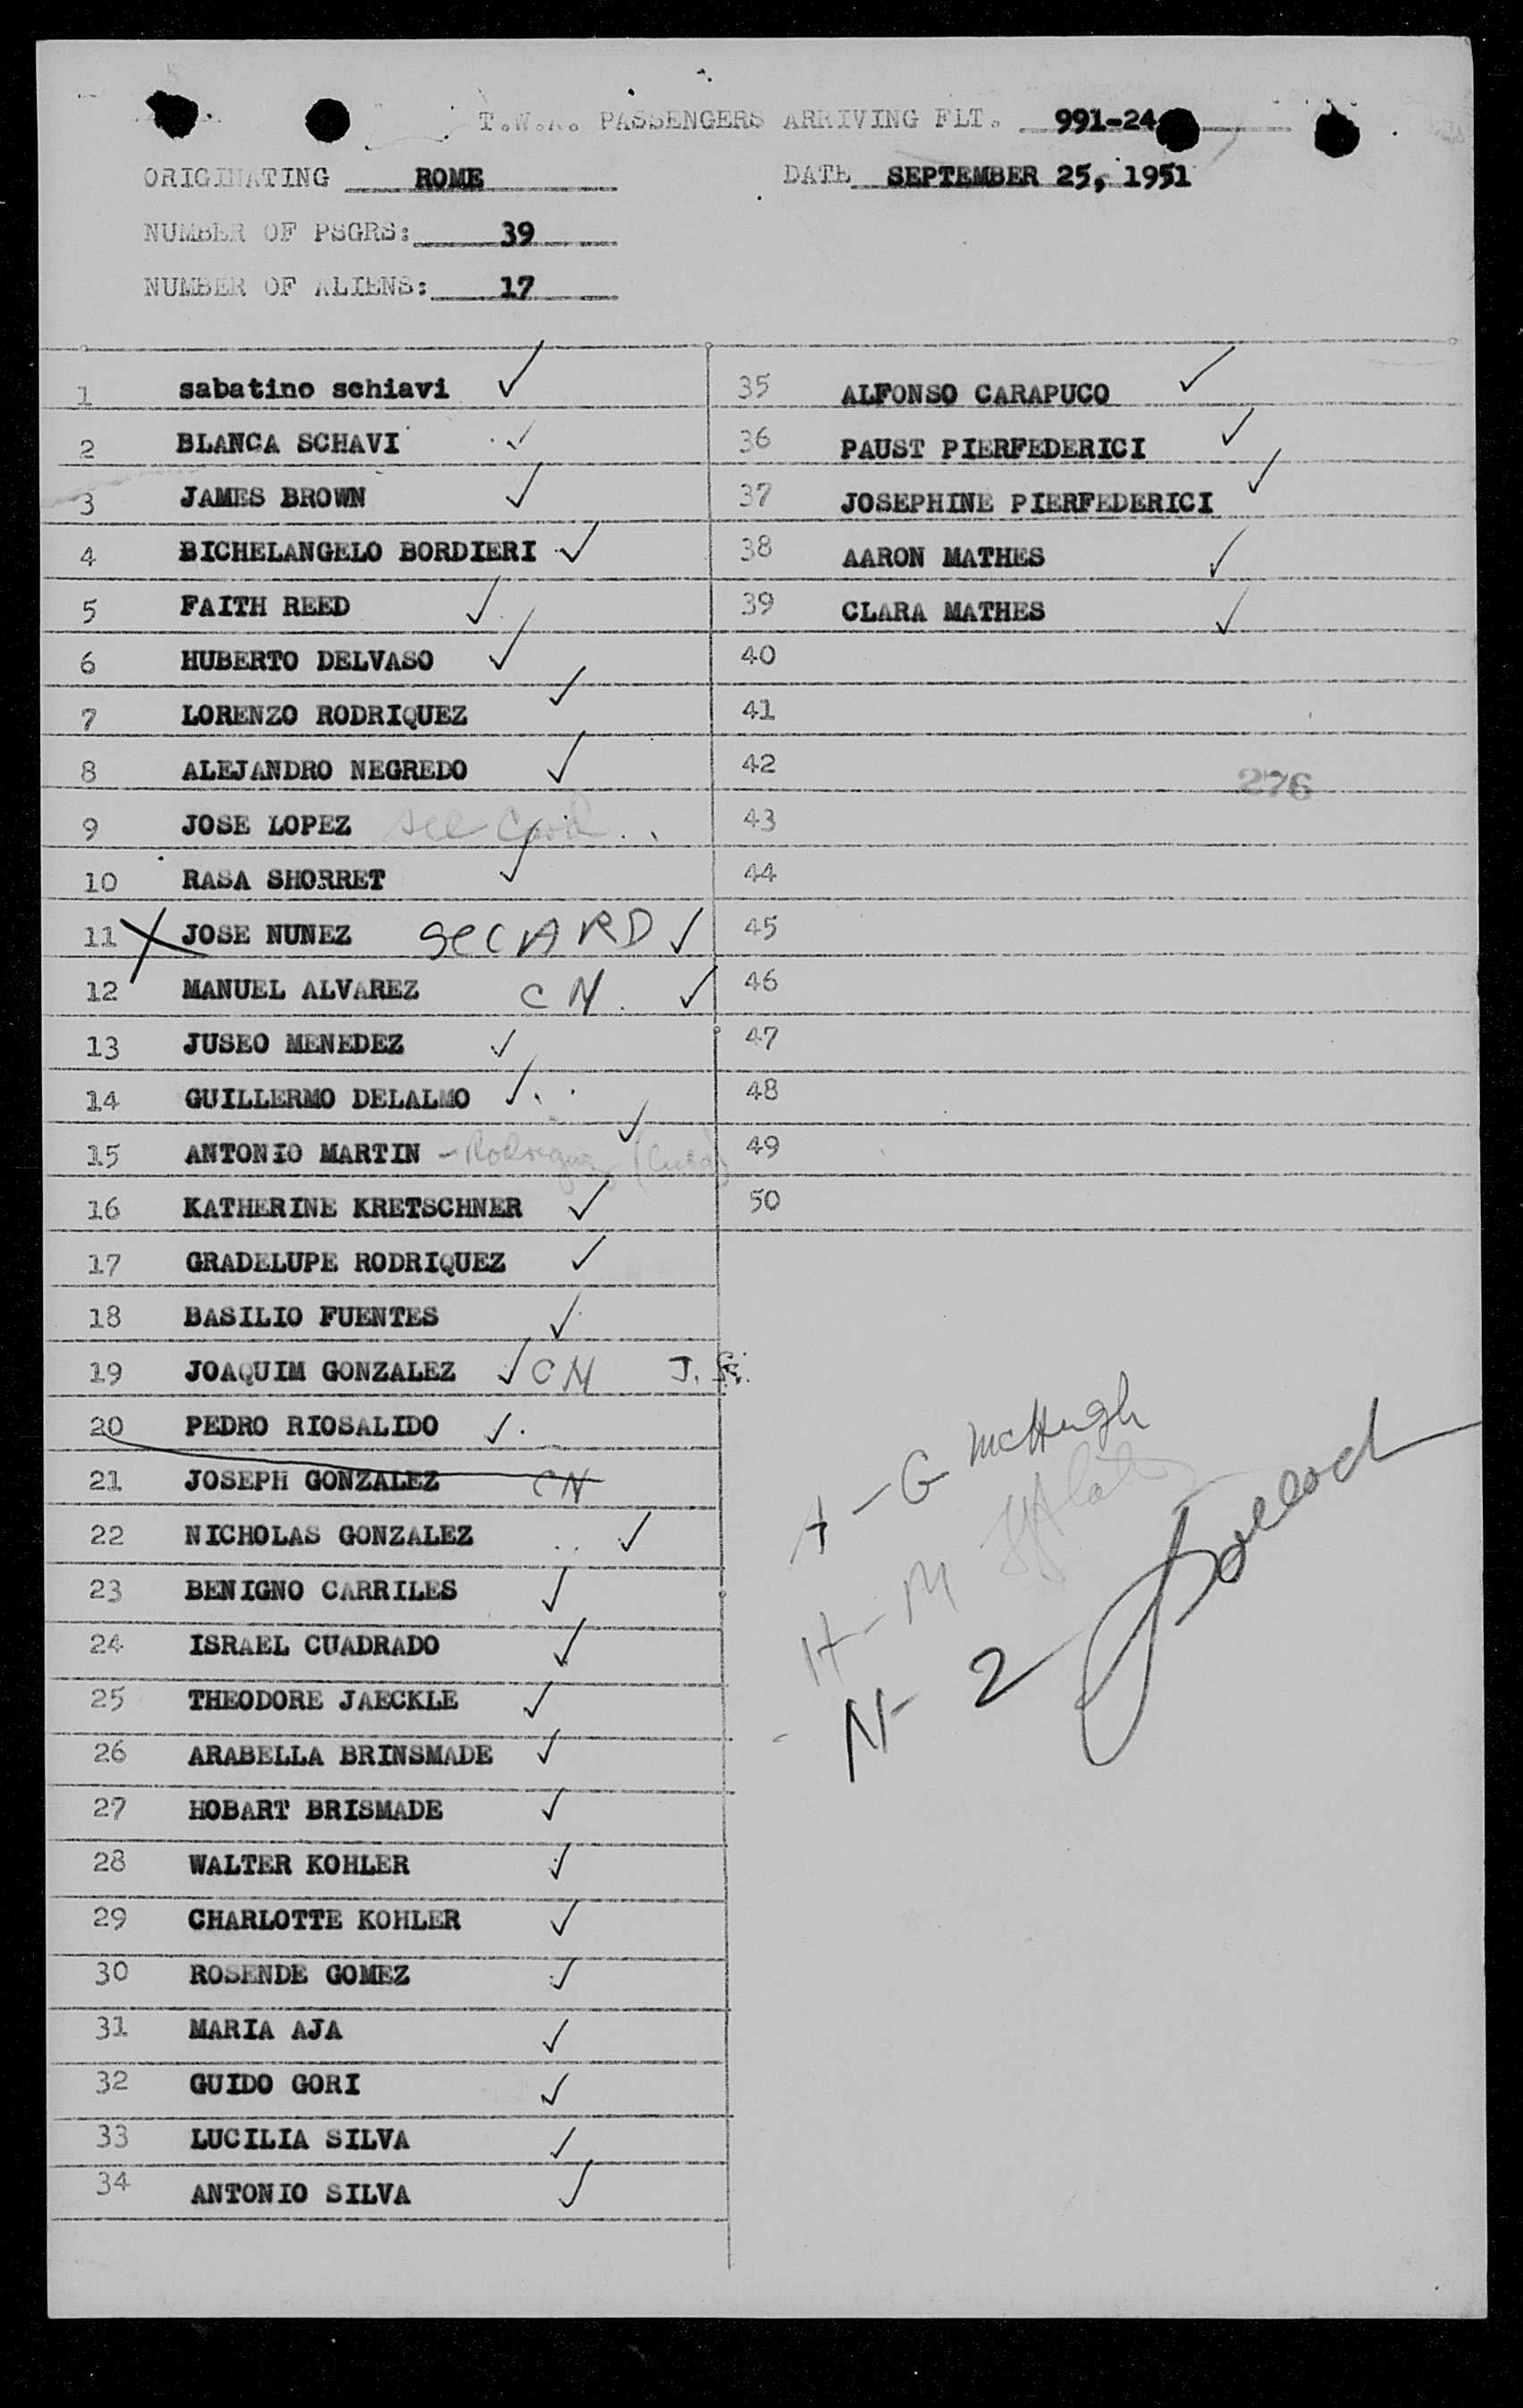 T.W.A. PASSENGERS ARRIVING FLT. 991-24
ORIGINATING ROME DATE SEPTEMBER 25, 1951
NUMBER OF PSGRS: 39
NUMBER OF ALIENS: 17
1 sabatino schiavi ✓
2 BLANCA SCHAVI ✓
3 JAMES BROWN ✓
4 BICHELANGELO BORDIERI ✓
5 FAITH REED ✓
6 HUBERTO DELVASO ✓
7 LORENZO RODRIQUEZ ✓
8 ALEJANDRO NEGREDO ✓
9 JOSE LOPEZ see Card
10 RASA SHORRET ✓
11 X JOSE NUNEZ SeCARD ✓
12 MANUEL ALVAREZ CN ✓
13 JUSEO MENEDEZ ✓
14 GUILLERMO DELALMO ✓
15 ANTONIO MARTIN - Rodriguez (Cuba) ✓
16 KATHERINE KRETSCHNER ✓
17 GRADELUPE RODRIQUEZ ✓
18 BASILIO FUENTES ✓
19 JOAQUIM GONZALEZ ✓ CN
20 PEDRO RIOSALIDO ✓
21 JOSEPH GONZALEZ CN
22 NICHOLAS GONZALEZ ✓
23 BENIGNO CARRILES ✓
24 ISRAEL CUADRADO ✓
25 THEODORE JAECKLE ✓
26 ARABELLA BRINSMADE ✓
27 HOBART BRISMADE ✓
28 WALTER KOHLER ✓
29 CHARLOTTE KOHLER ✓
30 ROSENDE GOMEZ ✓
31 MARIA AJA ✓
32 GUIDO GORI ✓
33 LUCILIA SILVA ✓
34 ANTONIO SILVA ✓
35 ALFONSO CARAPUCO ✓
36 PAUST PIERFEDERICI ✓
37 JOSEPHINE PIERFEDERICI ✓
38 AARON MATHES ✓
39 CLARA MATHES ✓
40
41
42
276
43
44
45
46
47
48
49
50
G McHugh
H - M
N - 2